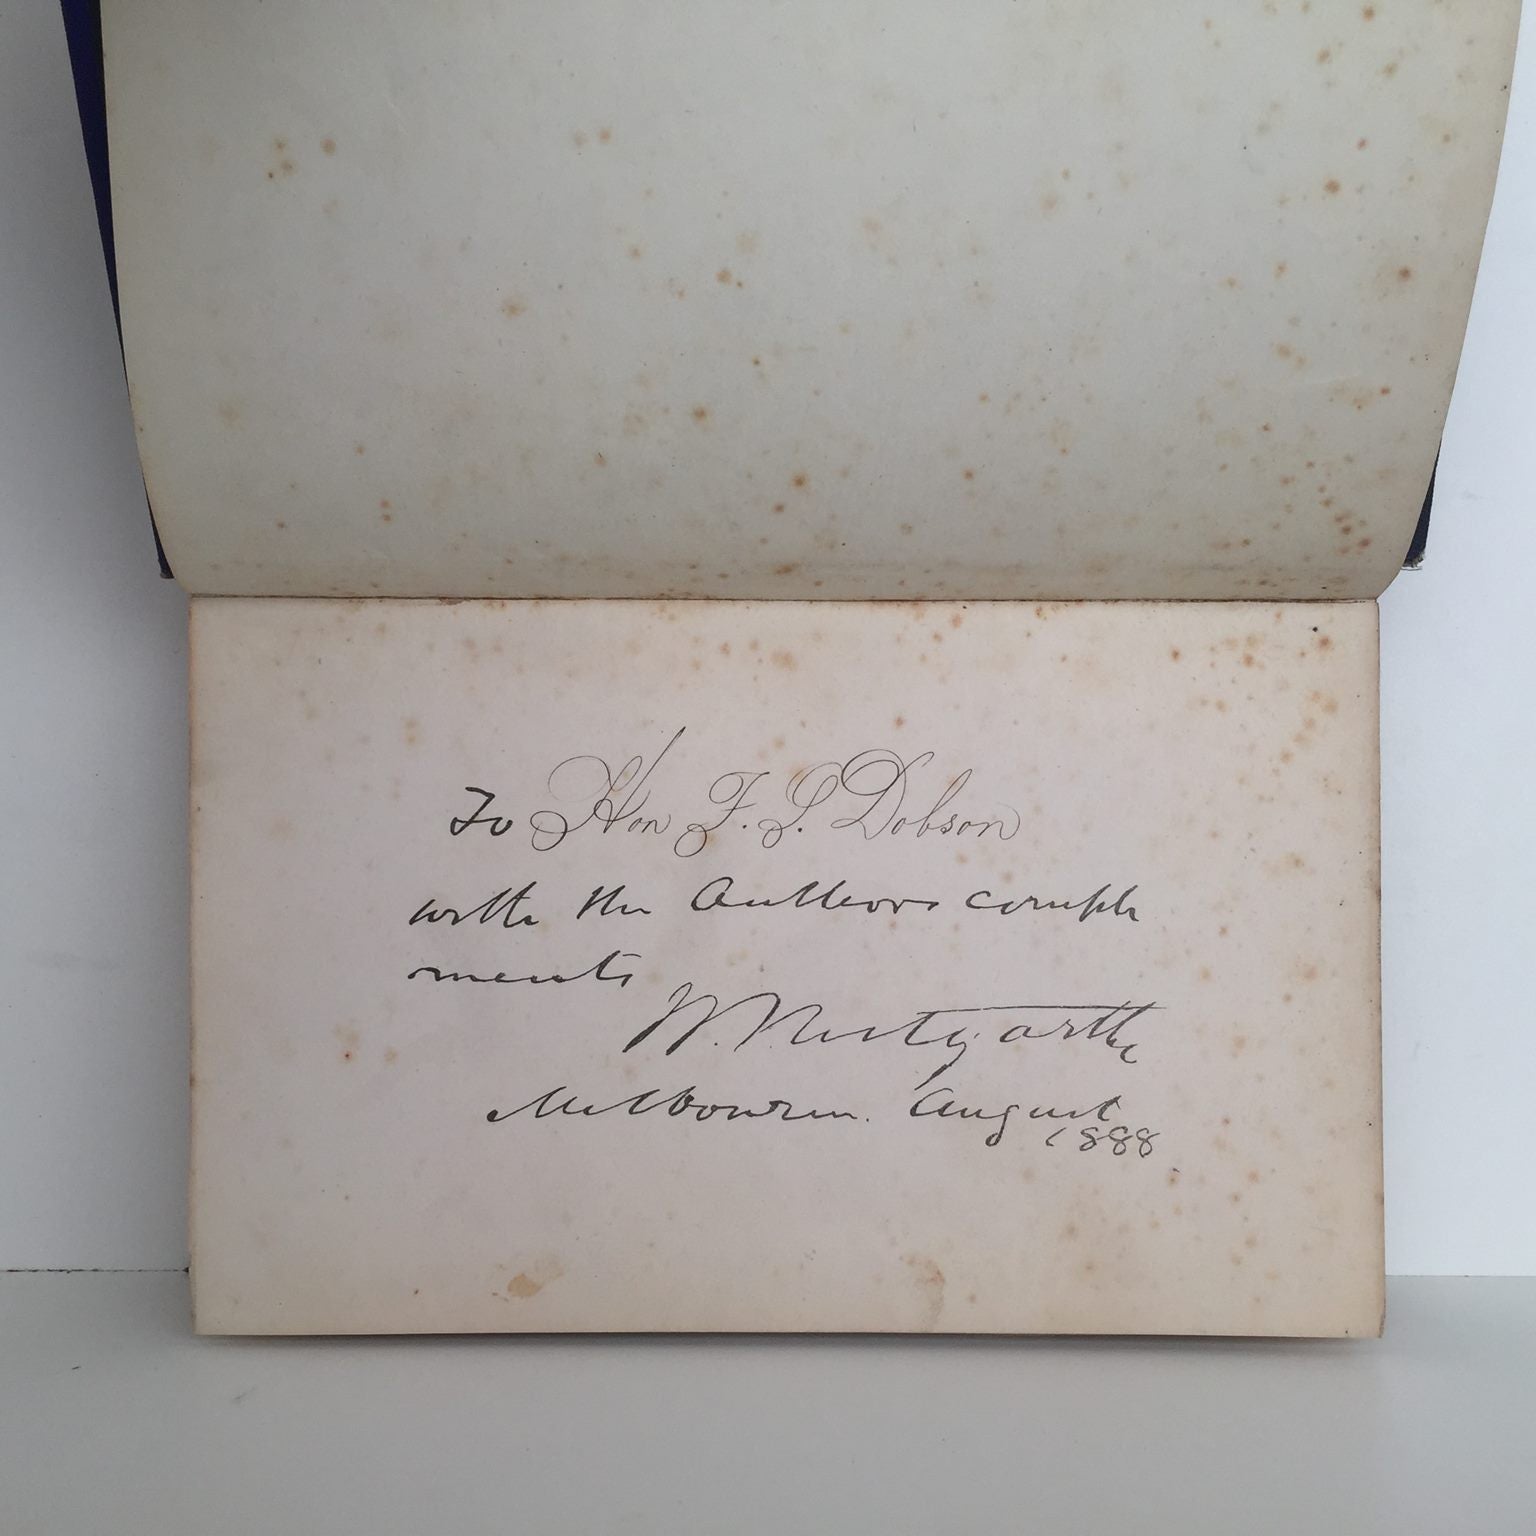 To Hon F. S. Dobson
with the Authors compli
ments
W. Westgarth
Melbourne. August
1888